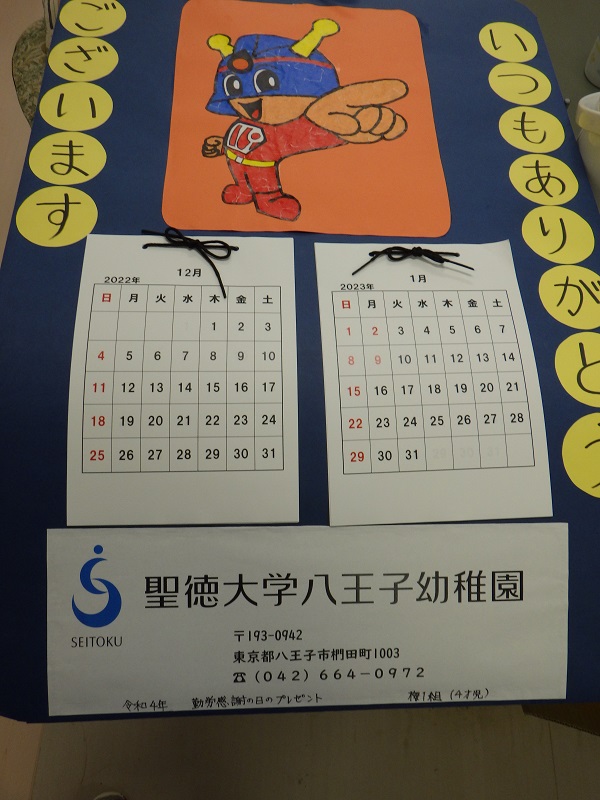 いつもありがとう
ございます
2022年 12月
日 月 火 水 木 金 土
1 2 3
4 5 6 7 8 9 10
11 12 13 14 15 16 17
18 19 20 21 22 23 24
25 26 27 28 29 30 31
2023年 1月
日 月 火 水 木 金 土
1 2 3 4 5 6 7
8 9 10 11 12 13 14
15 16 17 18 19 20 21
22 23 24 25 26 27 28
29 30 31
SEITOKU
聖徳大学八王子幼稚園
〒193-0942
東京都八王子市椚田町1003
☎(042)664-0972
令和4年 勤労感謝の日のプレゼント 1組(4才児)